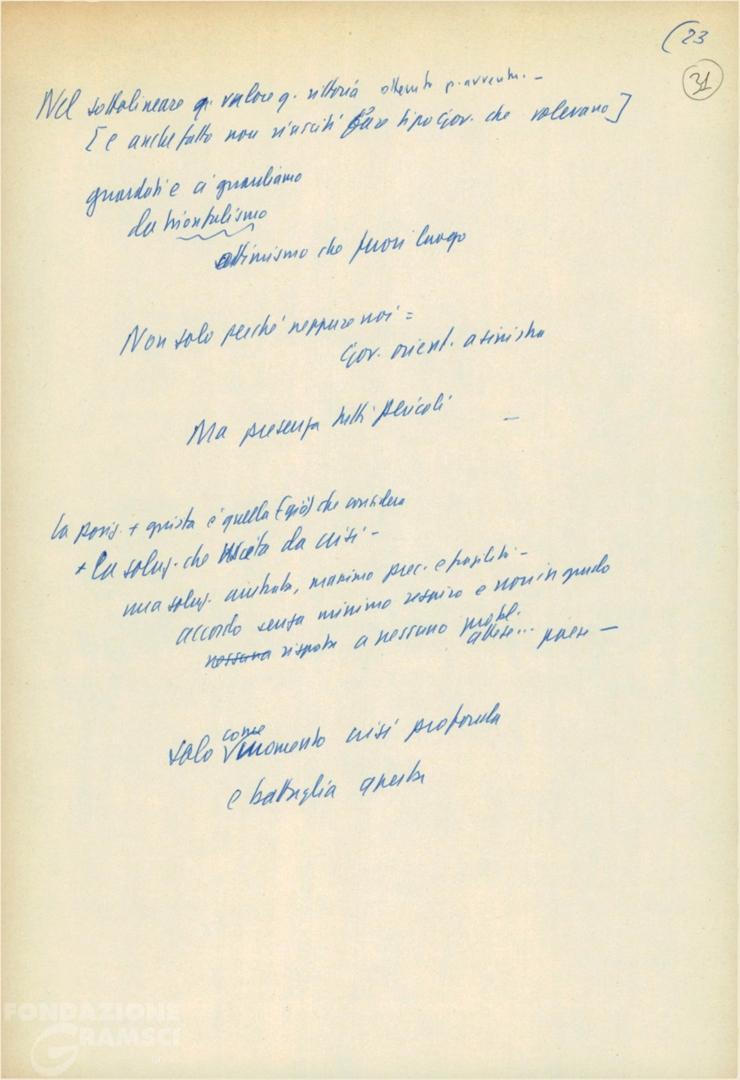 (23
31
Nel sottolineare q. valore q. vittoria ottenuta p. avventu. –
[e anche fatto non riusciti fare tipo Gov. che volevano]
guardati e ci guardiamo
da trionfalismo
ottimismo che fuori luogo
Non solo perché neppure noi =
Gov. orient. a sinistra
Ma presenza tutti pericoli –
la posiz. + giusta è quella (già) che considera
+ la soluz. che uscita da crisi –
una soluz. arretrata, massimo prec. e fragilità –
accordo senza minimo respiro e non in grado
nessuna risposta a nessuno probl.
attese... paese –
solo come momento crisi profonda
e battaglia aperta
FONDAZIONE
GRAMSCI